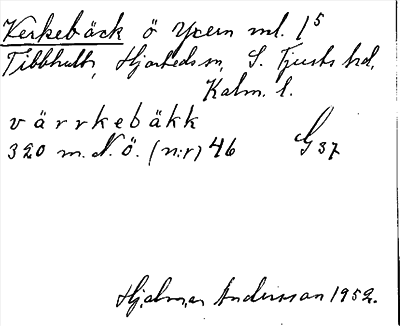 Verkebäck ö Yxern ml. 1⁵
Tibbhult, Hjorteds sn, S. Tjusts hd,
Kalm. l.
värrkebäkk
320 m. N.ö. (n:r) 46 G 37
Hjalmar Andersson 1952.